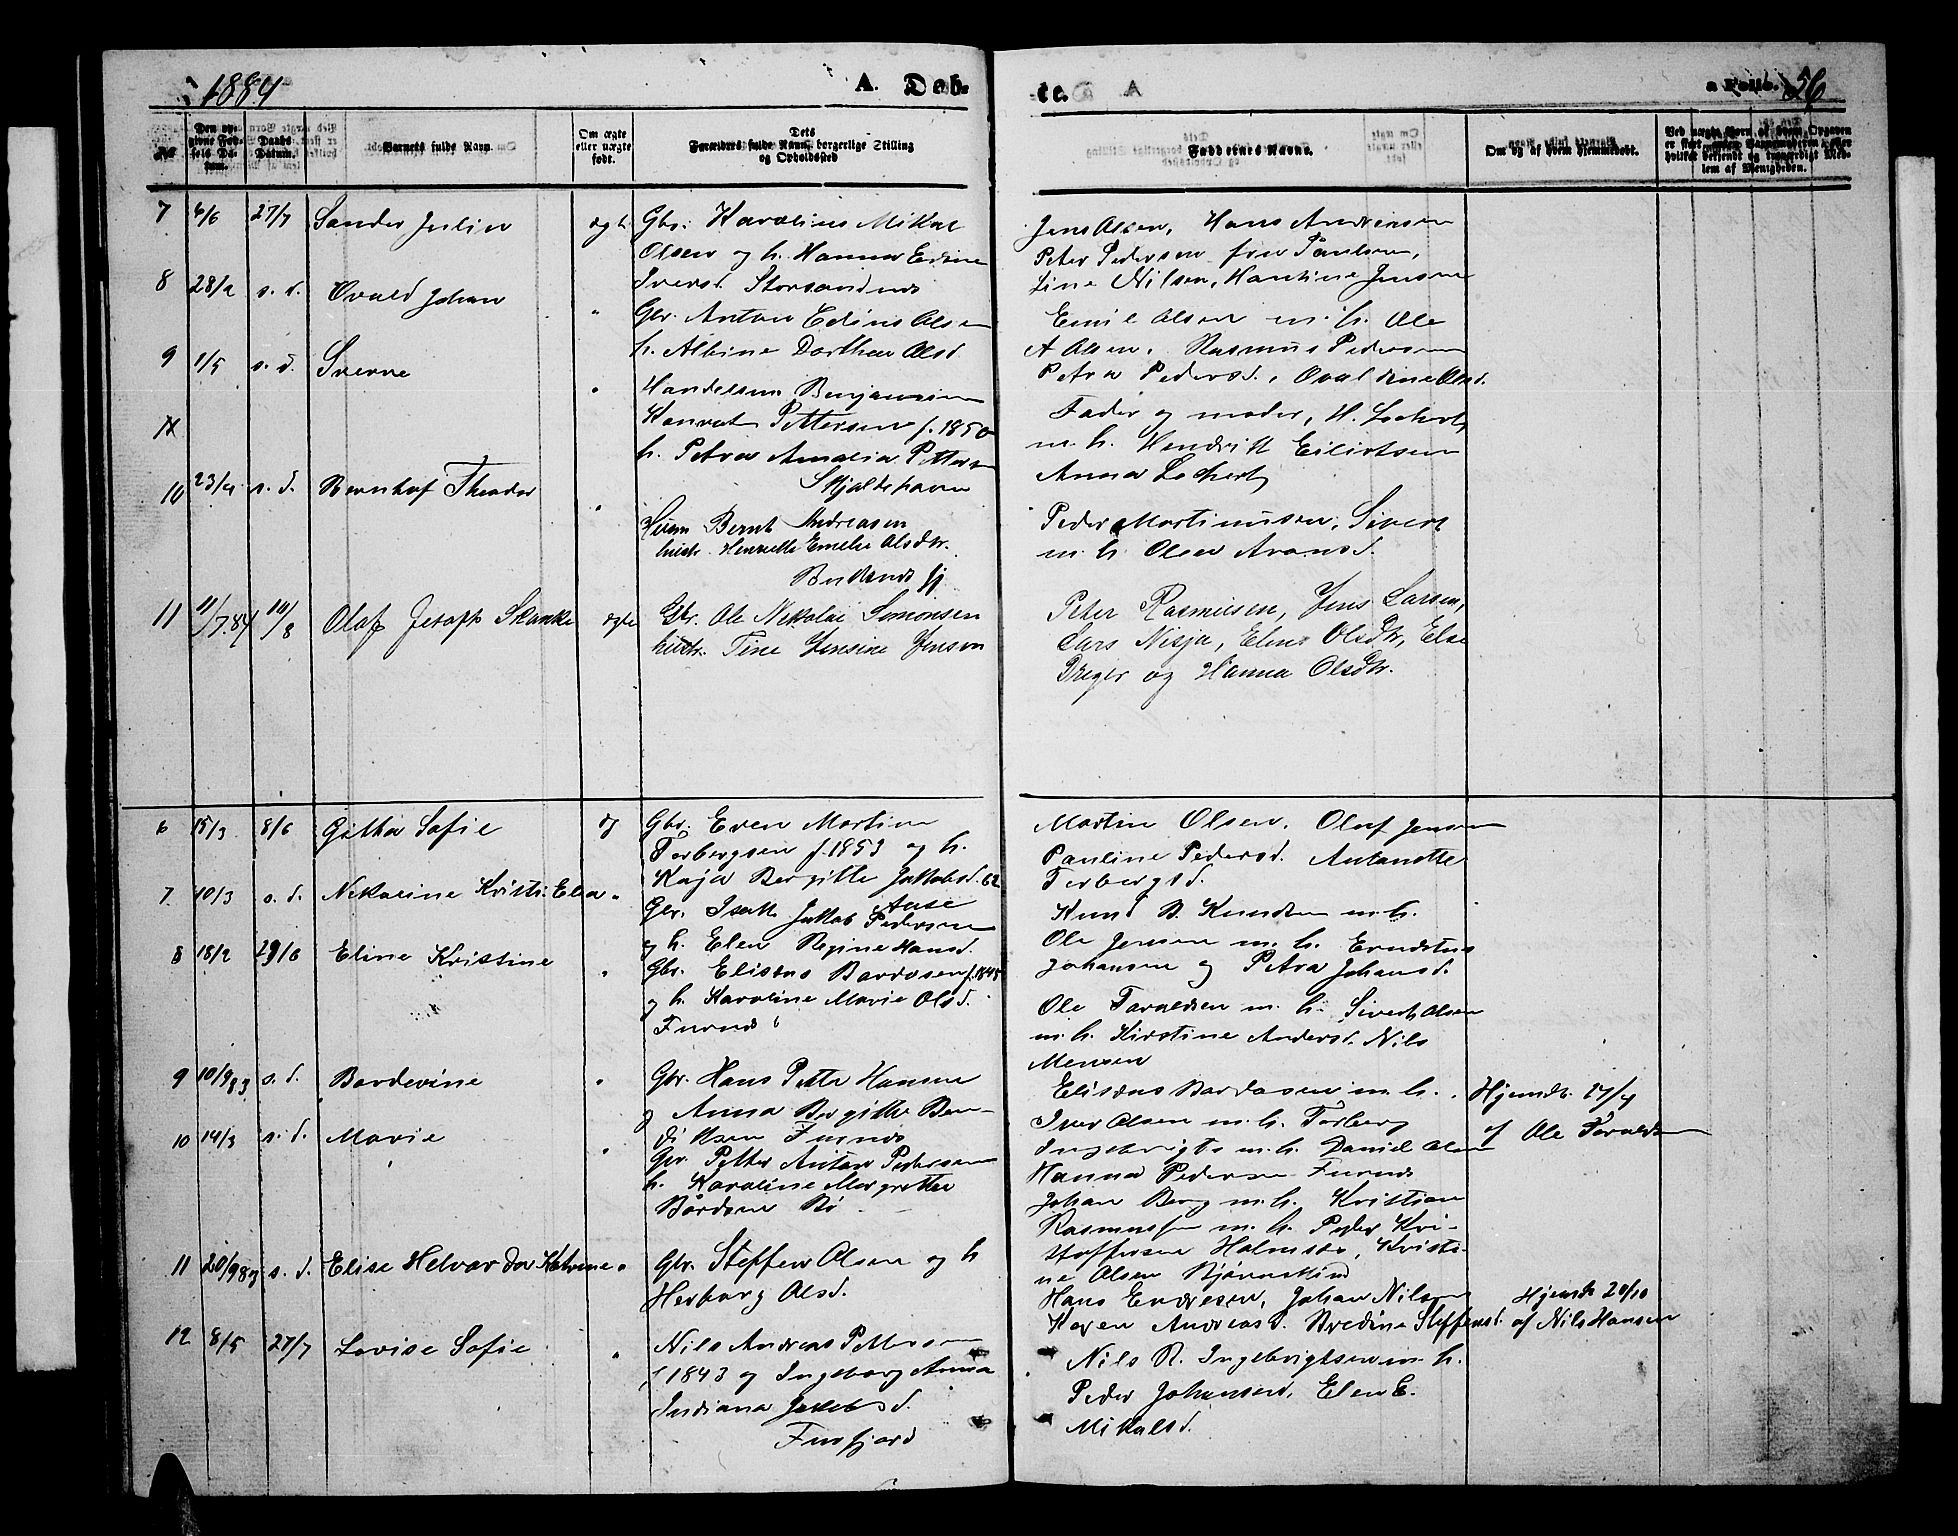 1884
A. Døb-
te.
a Folio. 56
No.
Den op-
givne Fød-
sels Da-
tum.
Daabs
Datum.
Barnets fulde Navn.
Om ægte
eller uægte
født.
Dets
Forældres fulde Navn, borgerlige Stilling
og Opholdssted
Faddernes Navne.
Om og af hvem hjemmedøbt.
7 4/6 27/7 Sander Julin ægte
Gbr. Karolius Mikal
Olsen og h. Hanna Edine
Iversd Storsandnes
Jens Olsen, Hans Andreasen
Peter Pedersen fru Paulsen,
Line Nilsen, Hantine Jensen
8 28/2 s. d. Ovald Johan "
Gbr. Anton Edins Olsen
h. Albine Dorthea Olsd
Emil Olsen m. h. Ole
A Olsen. Rasmus Pedersen
Petra Pedersd. Ovaldine Olsd.
9 1/5 s. d. Sverre "
Handelsm Benjamin
Konrat Pettersen f. 1850
h. Petra Amalia Petters
Skjaldehavn
Fader og moder, H. Lockert
m. h. Hendrik Eilertsen
Anna Lockert
10 23/4 s. d. Bernhof Theodor "
Huusm Bernt Andreasen
hustr. Henrette Emelie Olsdtr.
Peder Martinusen, Sivert
m. h. Olea Aronsd.
11 11/7.84 10/8 Olaf Jetoph Skanke ægte
Gbr. Ole Nikolai Simonsen
hustr. Tine Jensine Jensen
Peter Rasmusen, Jens Larsen,
Lars Nisja, Elene Olsdtr, Else
Dreyer og Hanna Olsdtr.
6 15/3 8/6 Githa Sofie æg
Gbr. Even Martin
Torbergsen f. 1853 og h.
Kaja Bergitte Jakobsd. 62
Martin Olsen. Olaf Jensen
Pauline Pedersd. Antonette
Torbergsd.
7 10/3 s. d. Nikoline Kristi. Elea "
Gbr. Isak Jakob Aase
Pedersen
og h. Elen Regine Hansd.
Knud B. Knudsen m. h.
Ole Jensen m. h. Erndstus
Johansen og Petra Johansd.
8 18/2 29/6 Eline Kristine "
Gbr. Eliseus Bardosen f. 1845
og h. Karoline Marie Olsd.
Furnes
Ole Taraldsen m. h. Sivert Olsen
m. h. Kirstine Andersd. Nils
Mensen
9 10/9 83 s. d. Bardovine "
Gbr. Hans Petter Hansen
og Anna Bergitte Ben-
diksen Furnes
Eliseus Bardosen m. h.
Iver Olsen m. h. Torberg
Ingebrigts m. h. Daniel Olsen
Hanna Pedersen Furnes
Hjemdt. 27/4
af Ole Taralds
10 14/3 s. d. Marie "
Gbr Petter Anton Pedersen
h. Karoline Margrethe
Bårdsen Bø
Johan Berg m. h. Kristian
Rasmussen m. h. Peder Kri-
stoffersen Holmsæs, Kristi-
ne Olsen Bjørnskind
11 20/9 83 s. d. Elise Helvar Dor Katrine "
Gbr. Steffen Olsen og h
Herborg Olsd.
Hans Endresen, Johan Nilsen
Karen Andreasd. Bredine Steffensd.
Hjemdt 20/10
af Nils Hansen
12 8/5 27/7 Lovise Sofie "
Nils Andreas Pettersen
f 1843 og Ingeborg Anna
Indiana Jakobsd.
Furfjord
Nils R. Ingebrigtsen m. h.
Peder Johansen, Elen E.
Mikalsd.